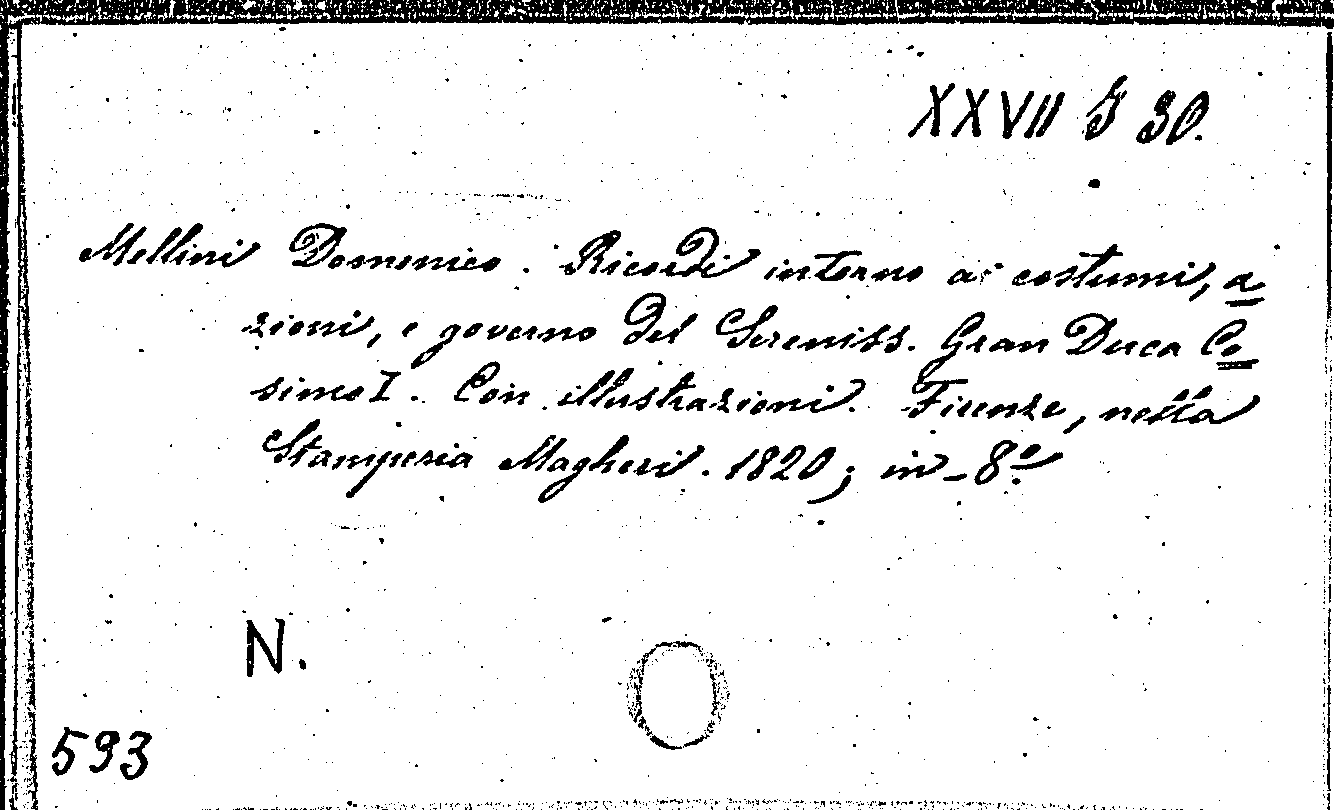 XXVII J 30.
Mellini Domenico. Ricordi intorno ai costumi, a
zioni, e governo del Sereniss. Gran Duca Co
simo I. Con illustrazioni. Firenze, nella
Stamperia Magheri. 1820; in-8º.
N.
593